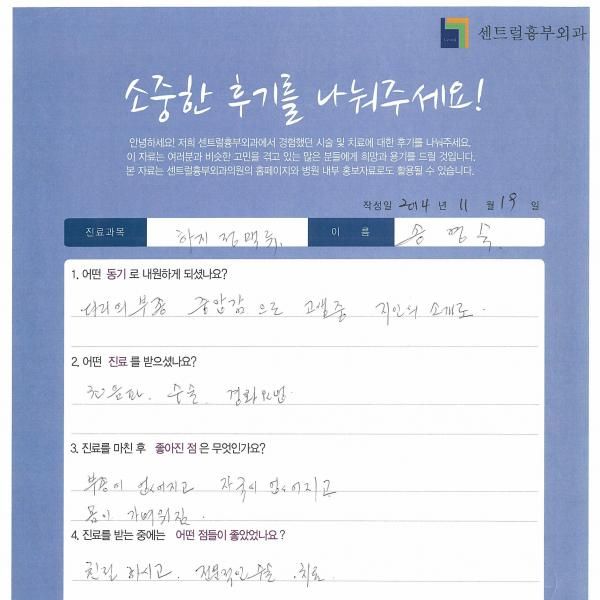 센트럴흉부외과
소중한 후기를 나눠주세요!
안녕하세요! 저희 센트럴흉부외과에서 경험했던 시술 및 치료에 대한 후기를 나눠주세요.
이 자료는 여러분과 비슷한 고민을 겪고 있는 많은 분들에게 희망과 용기를 드릴 것입니다.
본 자료는 센트럴흉부외과의원의 홈페이지와 병원 내부 홍보자료로도 활용될 수 있습니다.
작성일 2014 년 11 월 19 일
진료과목 하지 정맥류. 이 름 송 영 숙.
1. 어떤 동기 로 내원하게 되셨나요?
다리의 부종 중압감 으로 고생중 지인의 소개로.
2. 어떤 진료 를 받으셨나요?
초음파. 수술. 경화요법.
3. 진료를 마친 후 좋아진 점 은 무엇인가요?
부종이 없어지고 자국이 없어지고
몸이 가벼워짐.
4. 진료를 받는 중에는 어떤 점들이 좋았었나요 ?
친절 하시고. 전문적인 수술. 치료.